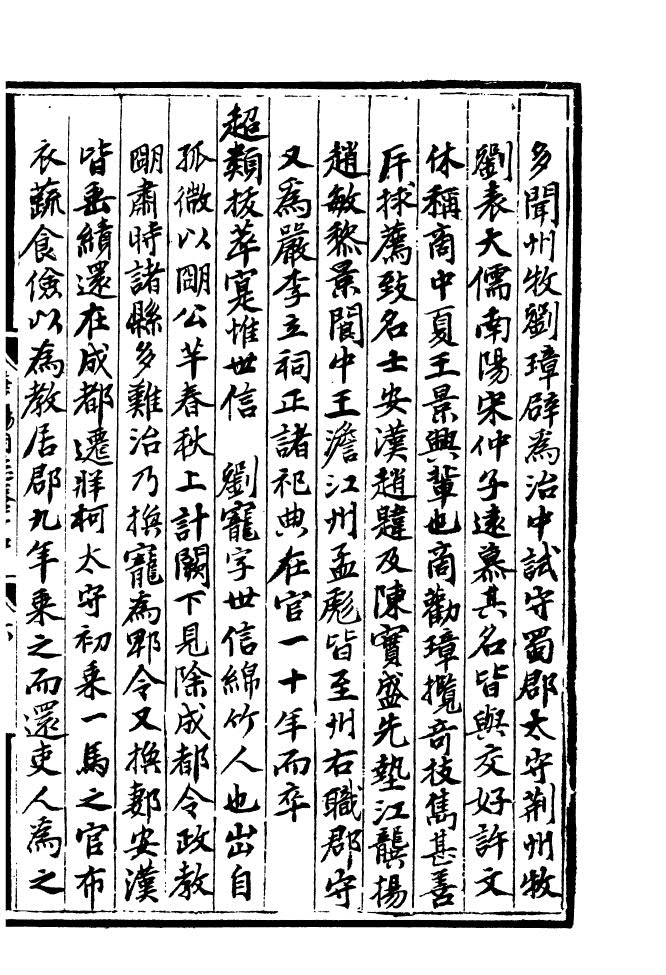 多聞州牧劉璋辟為治中試守蜀郡太守荆州牧
劉表大儒南陽宋仲子遠慕其名皆與交好許文
休稱商中夏王景興輩也商勸璋攬奇拔雋甚善
匡捄薦致名士安漢趙韙及陳實盛先墊江龔揚
趙敏黎景閬中王澹江州孟彪皆至州右職郡守
又為嚴李立祠正諸祀典在官一十年而卒
超類拔萃寔惟世信 劉寵字世信綿竹人也出自
孤微以明公羊春秋上計闕下見除成都令政教
明肅時諸縣多難治乃換寵為郫令又換郪安漢
皆垂績還在成都遷牂柯太守初乘一馬之官布
衣蔬食儉以為教居郡九年乘之而還吏人為之